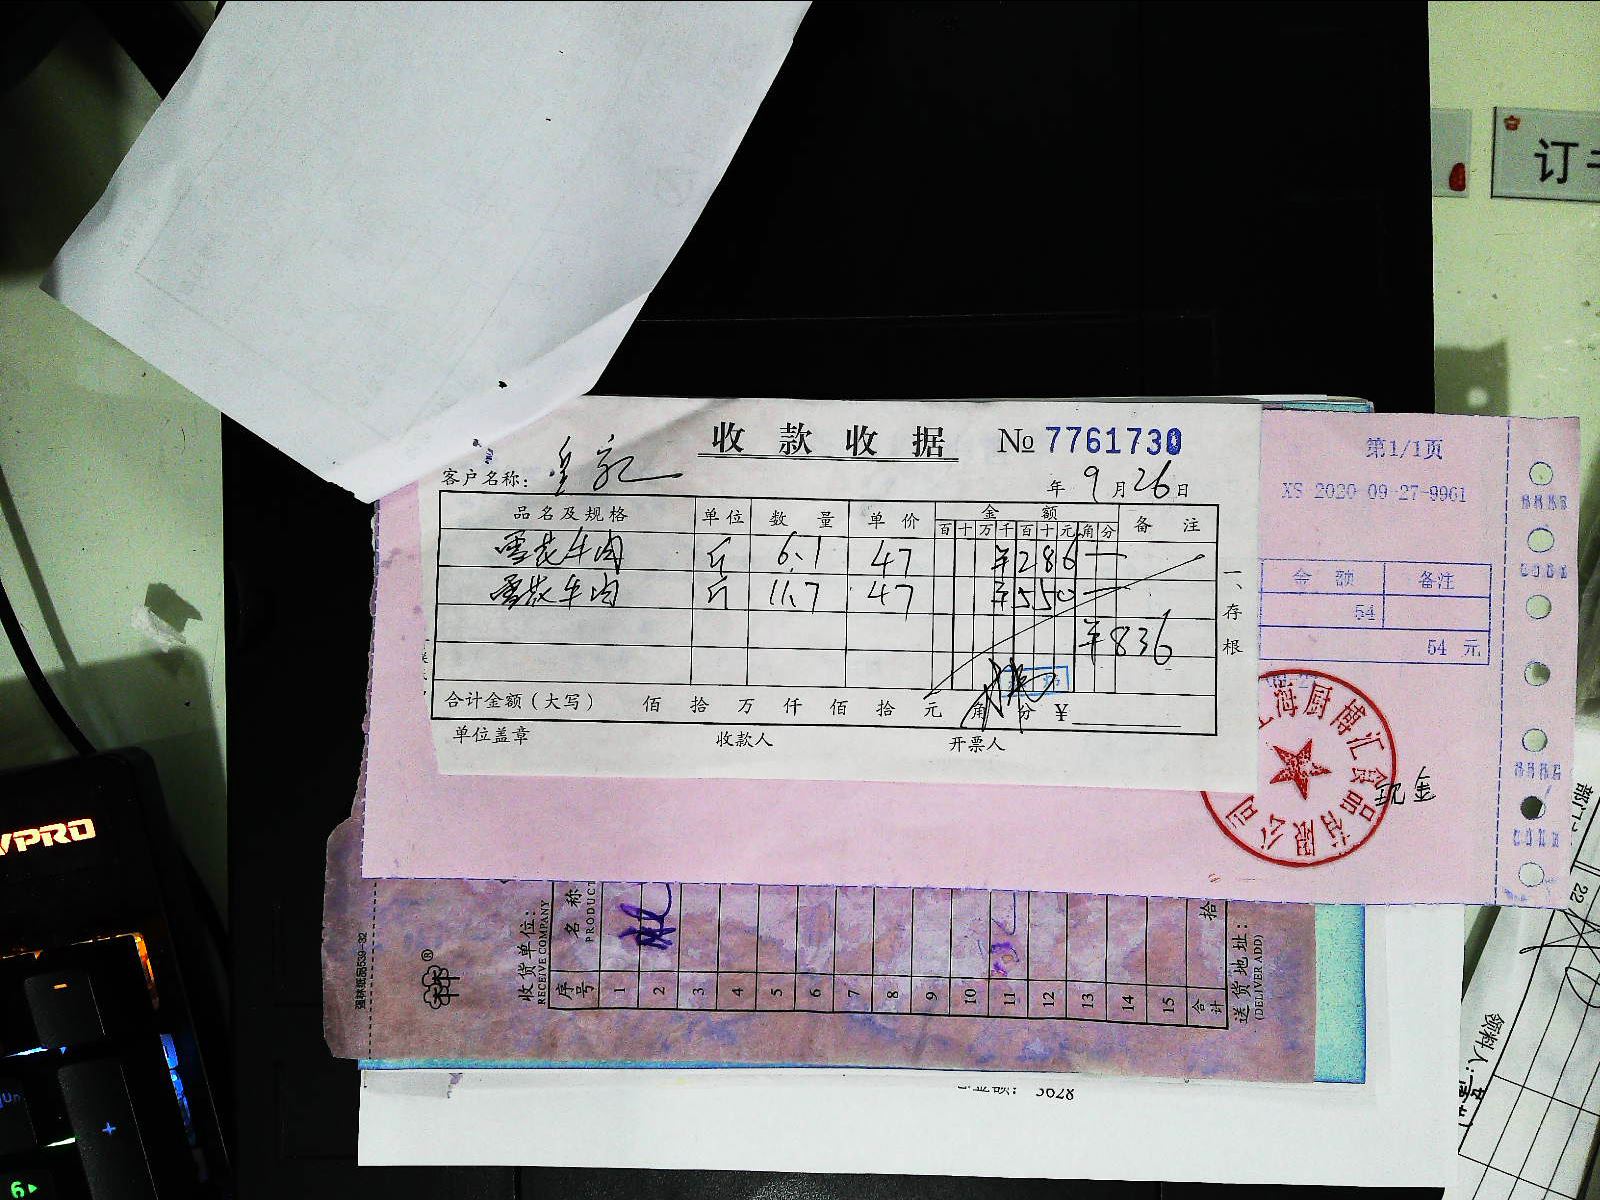 订
收款收据 № 7761730
客户名称：
年 9 月 26 日
品名及规格 单位 数量 单价 金额 备注
百 十 万 千 百 十 元 角 分
雪花牛肉 斤 6.1 47 ¥286—
雪花牛肉 斤 11.7 47 ¥550—
¥836
合计金额（大写） 佰 拾 万 仟 佰 拾 元 角 分 ¥
单位盖章 收款人 开票人
一、存根
第1/1页
XS-2020-09-27-9961
金额 备注
54
54 元
上海厨博汇食品有限公司
现金
VPRO
收货单位：
RECEIVE COMPANY
序号 名称
PRODUCT
1
2
3
4
5
6
7
8
9
10
11
12
13
14
15
合计 拾
送货地址：
(DELIVER ADD)
总金额： 3628
部门
22
领料人：
+
6